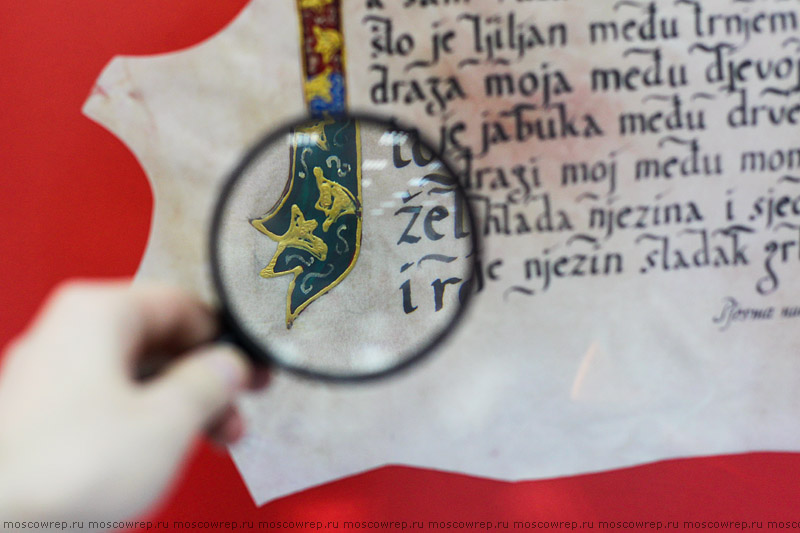 što je ljiljan među trnjem
draga moja među djevoj
to je jabuka među drve
dragi moj među mom
žel hlada njezina i sjed
i njezin sladak gr
moscowrep.ru moscowrep.ru moscowrep.ru moscowrep.ru moscowrep.ru moscowrep.ru moscowrep.ru moscowrep.ru moscowrep.ru